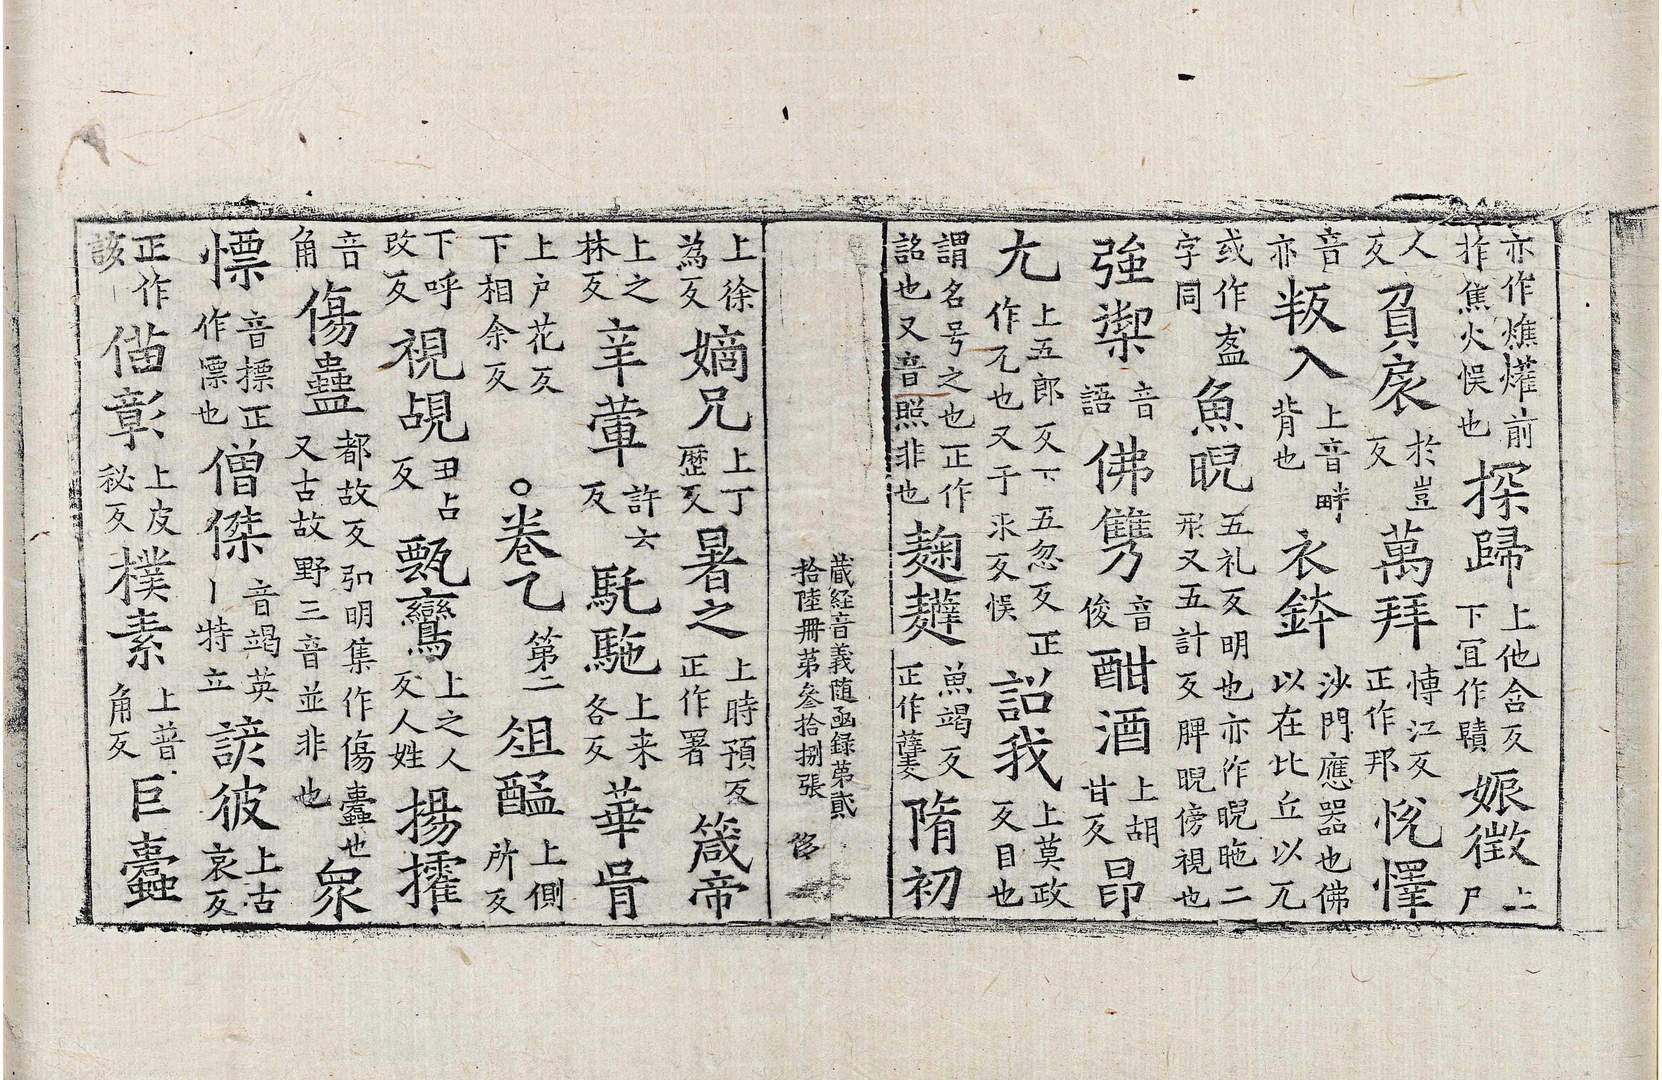 亦作燋㸌前作焦火悮也探歸上他含反下宜作賾娠徵上尸
人反負扆於豈反萬拜慱江反正作邦恱懌
音亦叛入上音畔背也衣鉢沙門應器也佛以在比丘以兀
或作盇字同魚晲五礼反明也亦作晲暆二形又五計反睥睨傍視也
強禦音語佛㑺音俊酣酒上胡甘反昂
九上五郎反下五忽反正作兀也又于求反悮詔我上莫政反目也
謂名号之也正作詺也又音照非也麹糵魚竭反正作蘖隋初
藏經音義随函録第貳拾陸冊第參拾捌張
上徐為反嫡兄上丁歷反暑之上時預反正作署箴帝
上之林反辛葷許云反馲駞上来各反華胥
上戶花反下相余反○卷乙第二俎醢上側所反
下呼改反視覘丑占反甄鸞上之人反人姓揚㩁
音角傷蠱都故反弘明集作傷蠹也又古故野三音並非也衆
慓音摽正作慓也僧傑音竭英丨特立諺彼上古哀反
正作該偹彰上皮秘反樸素上普角反巨蠹